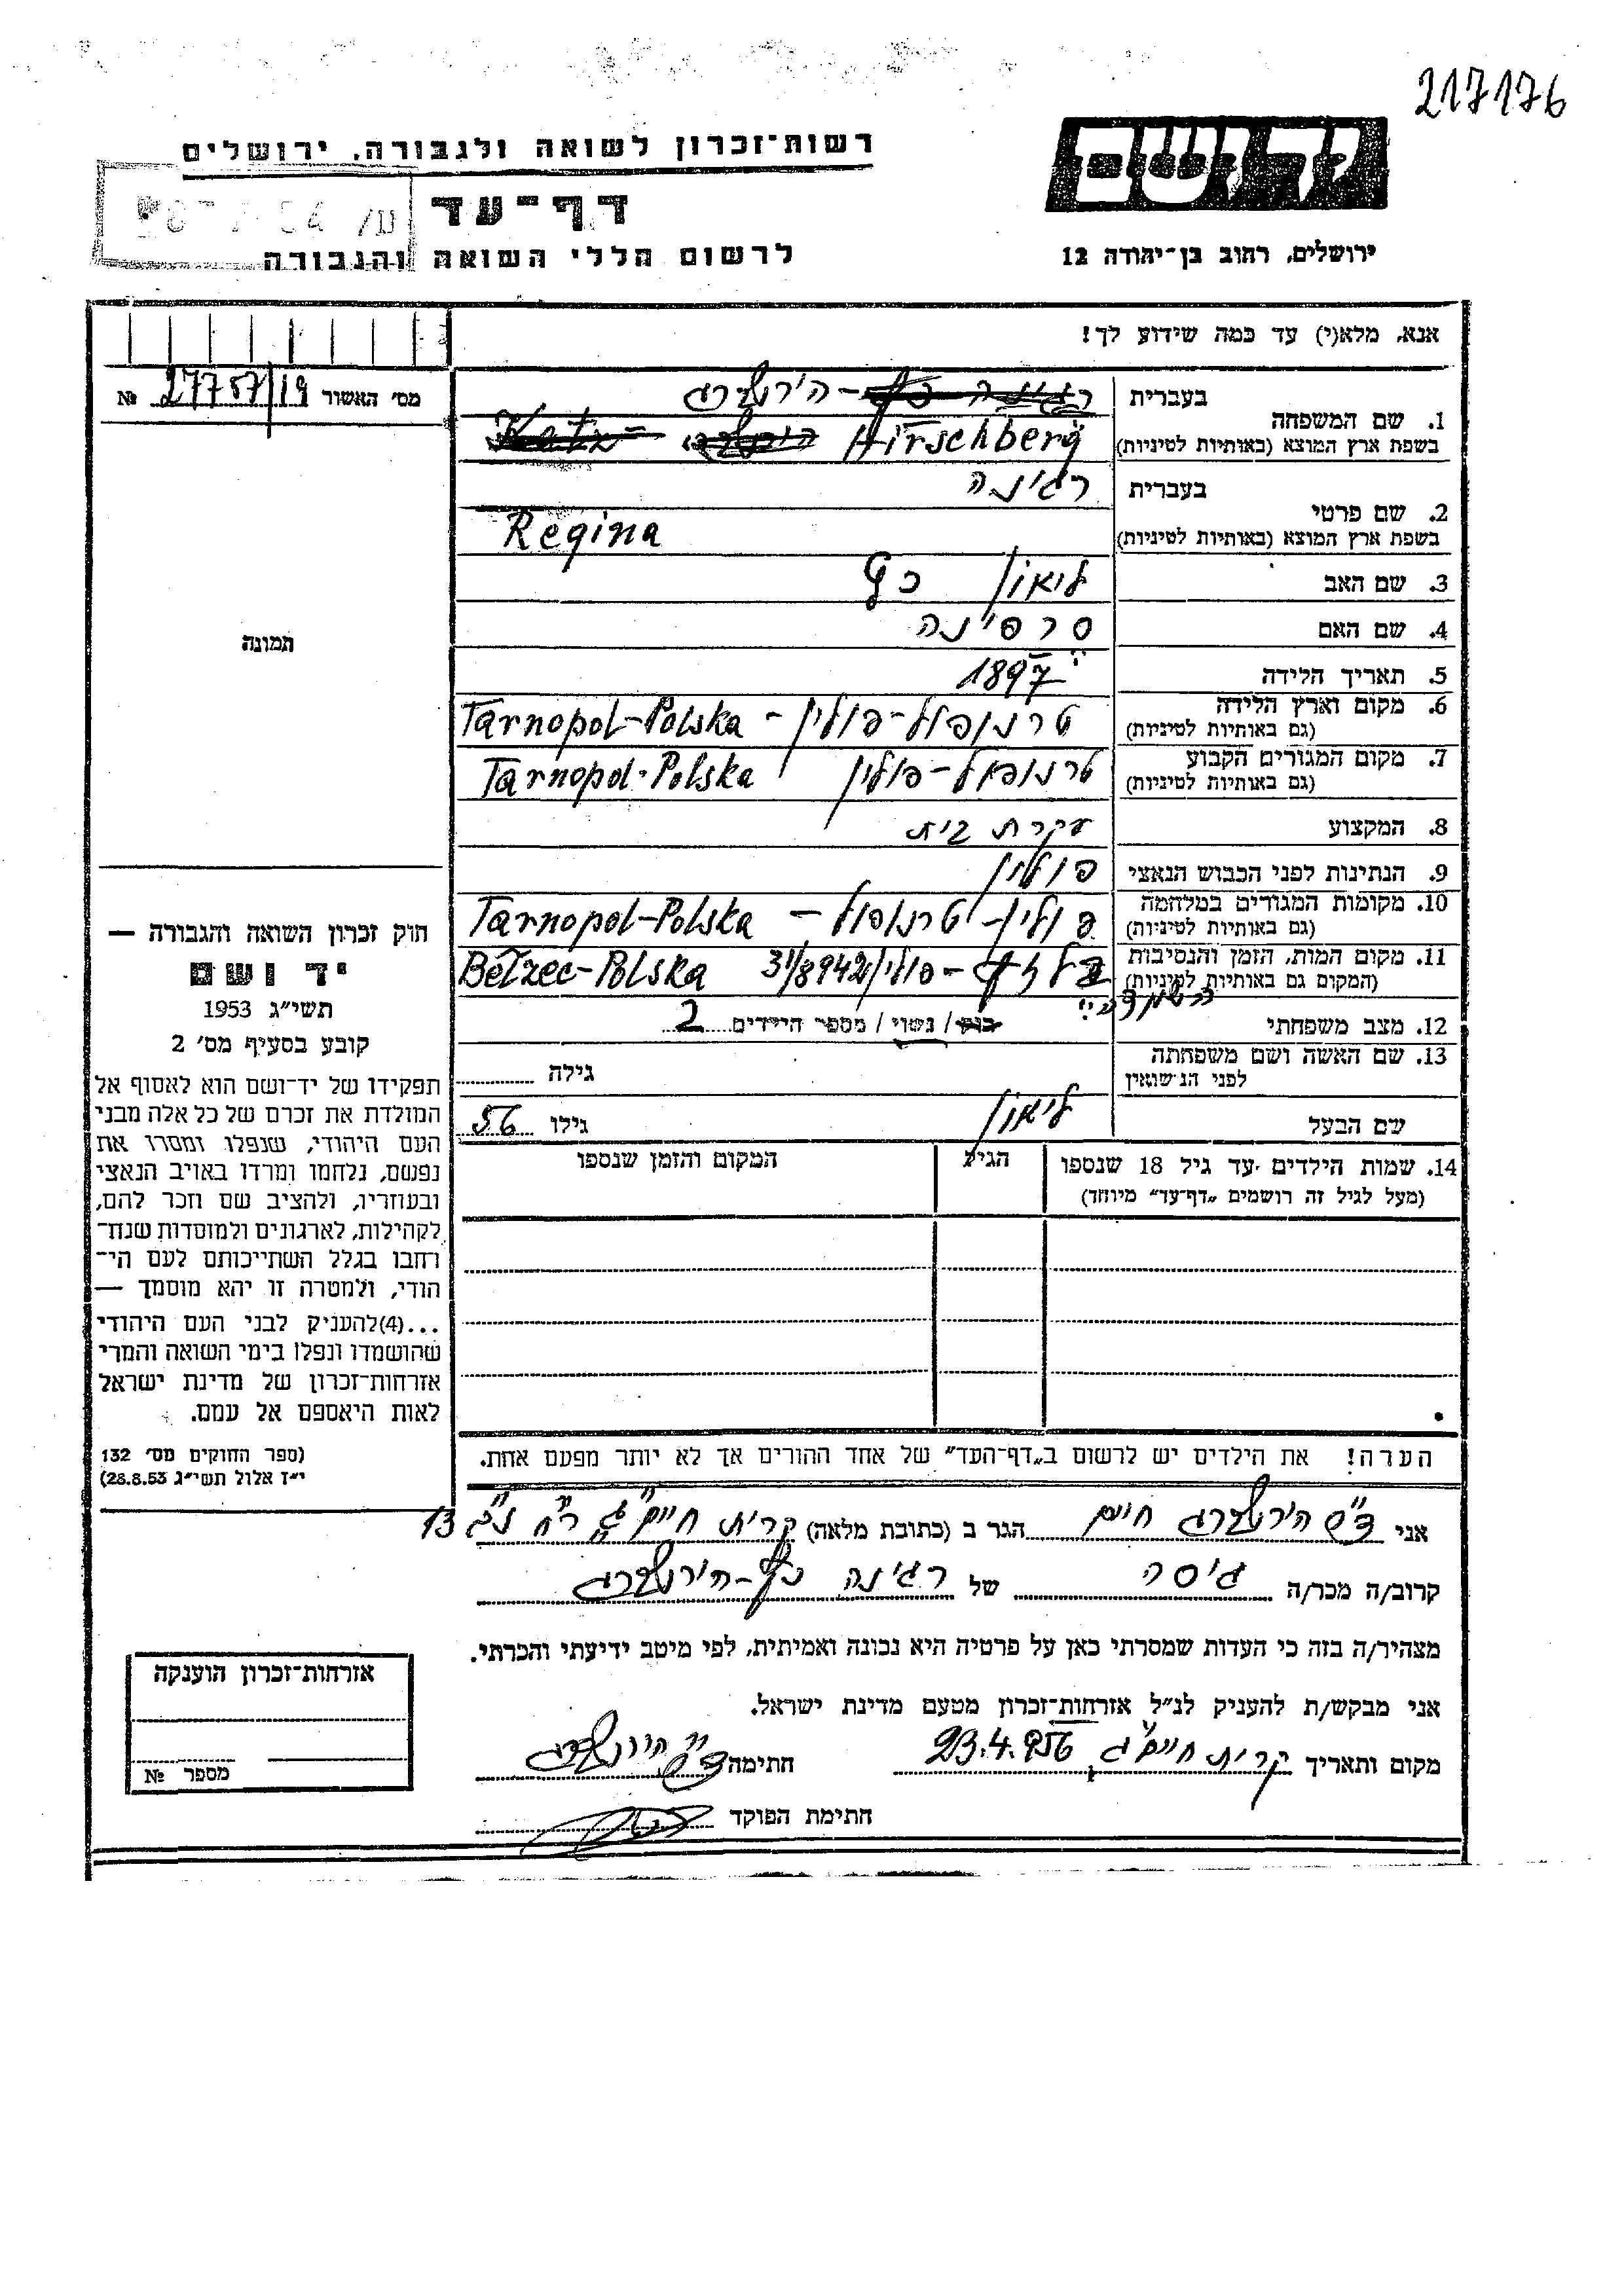 217176
יד ושם
רשות־זכרון לשואה ולגבורה, ירושלים
דף־עד
ירושלים, רחוב בן־יהודה 12
לרשום חללי השואה והגבורה
אנא, מלא(י) עד כמה שידוע לך!
מס' האשור 27757/19 №
1. שם המשפחה
בעברית הירשברג
בשפת ארץ המוצא (באותיות לטיניות) Hirschberg
2. שם פרטי
בעברית רגינה
בשפת ארץ המוצא (באותיות לטיניות) Regina
3. שם האב ליאון כץ
4. שם האם
5. תאריך הלידה 1897
6. מקום וארץ הלידה טרנופול-פולין - Tarnopol-Polska
(גם באותיות לטיניות)
7. מקום המגורים הקבוע טרנופול-פולין Tarnopol-Polska
(גם באותיות לטיניות)
8. המקצוע עקרת בית
9. הנתינות לפני הכבוש הנאצי פולין
10. מקומות המגורים במלחמה פולין-טרנופול - Tarnopol-Polska
(גם באותיות לטיניות)
11. מקום המות, הזמן והנסיבות בלזץ-פולין 31/8942 Bełzec-Polska
(המקום גם באותיות לטיניות) השמדה
12. מצב משפחתי רוק / נשוי / מספר הילדים 2
13. שם האשה ושם משפחתה
לפני הנשואין
גילה
שם הבעל ליאון גילו 56
14. שמות הילדים עד גיל 18 שנספו
(מעל לגיל זה רושמים „דף־עד” מיוחד)
הגיל
המקום והזמן שנספו
הערה! את הילדים יש לרשום ב„דף־העד” של אחד ההורים אך לא יותר מפעם אחת.
תמונה
חוק זכרון השואה והגבורה —
יד ושם
תשי״ג 1953
קובע בסעיף מס' 2
תפקידו של יד־ושם הוא לאסוף אל
המולדת את זכרם של כל אלה מבני
העם היהודי, שנפלו ומסרו את
נפשם, נלחמו ומרדו באויב הנאצי
ובעוזריו, ולהציב שם וזכר להם,
לקהילות, לארגונים ולמוסדות שנח־
רחבו בגלל השתייכותם לעם הי־
הודי, ולמטרה זו יהא מוסמך —
...(4)להעניק לבני העם היהודי
שהושמדו ונפלו בימי השואה והמרי
אזרחות־זכרון של מדינת ישראל
לאות היאספם אל עמם.
(ספר החוקים מס' 132
י״ז אלול תשי״ג 28.8.53)
אני ד״ר הירשברג חיים הגר ב (כתובת מלאה) קרית חיים ג' רח' נ״ג 13
קרוב/ה מכר/ה גיסה של רגינה כץ-הירשברג
מצהיר/ה בזה כי העדות שמסרתי כאן על פרטיה היא נכונה ואמיתית, לפי מיטב ידיעתי והכרתי.
אני מבקש/ת להעניק לנ״ל אזרחות־זכרון מטעם מדינת ישראל.
מקום ותאריך קרית חיים ג' 23.4.956 חתימה ד״ר הירשברג
חתימת הפוקד
אזרחות־זכרון הוענקה
מספר №